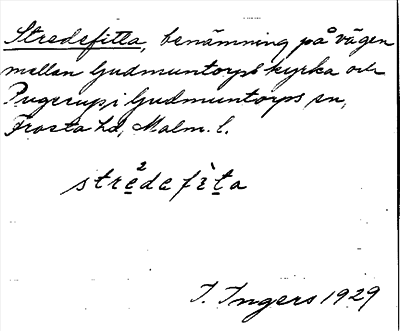 Stredefitta, benämning på vägen
mellan Gudmuntorps kyrka och
Pugerup i Gudmuntorps sn,
Frosta hd, Malm. l.
stre²defìta
I. Ingers 1929